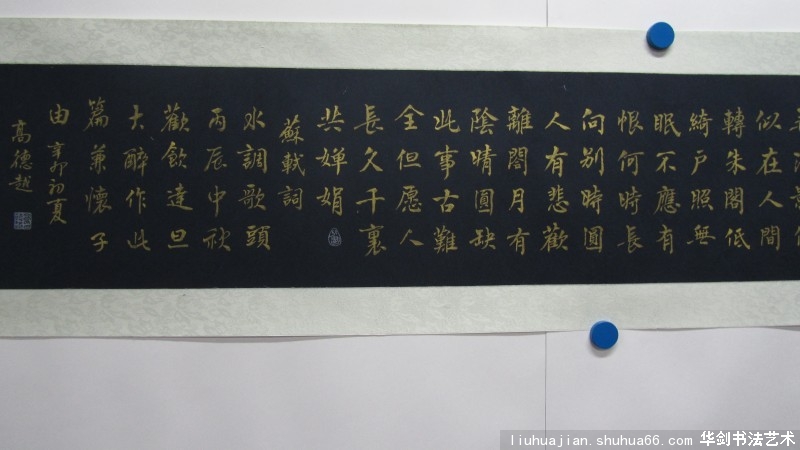 似在人間
轉朱閣低
綺戶照無
眠不應有
恨何時長
向别時圓
人有悲歡
離閤月有
陰晴圓缺
此事古難
全但愿人
長久千裏
共婵娟
蘇軾詞
水調歌頭
丙辰中秋
歡飲達旦
大醉作此
篇兼懷子
由 辛卯初夏
高德越
liuhuajian.shuhua66.com 华剑书法艺术